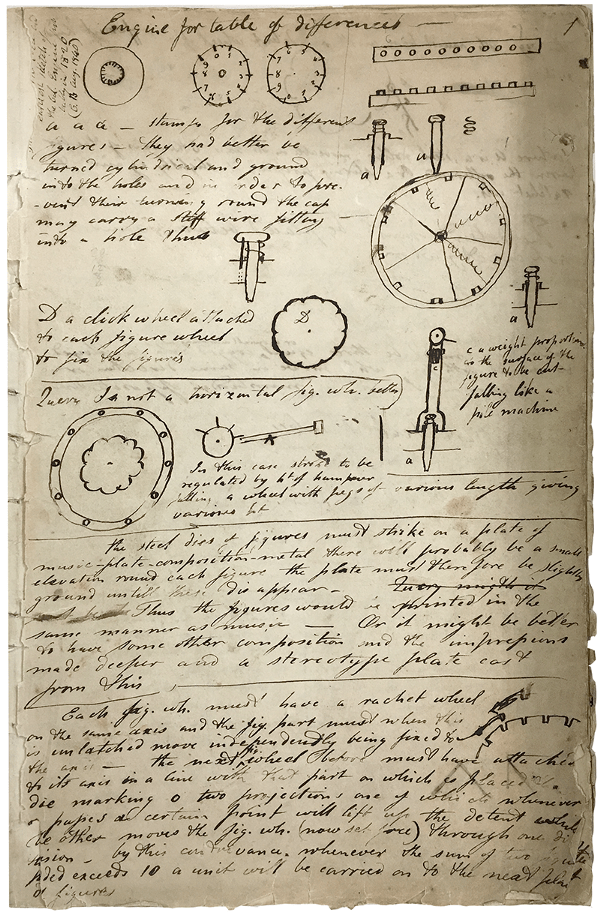 Engine for table of differences
1
a a a — stamps for the different
figures — they had better be
turned cylindrical and ground
into the holes and in order to pre-
-vent their turning round the cap
may carry a stiff wire fitting
into a hole thus
a
a
a
D
D a click wheel attached
to each figure wheel
to fix the figures
c
a
c a weight proportion
to the surface of the
figure to be cut
falling like a
pile machine
Query Is not a horizontal fig. wh. better
In this case stress to be
regulated by ht of hammer
falling a wheel with pegs of various length giving
various ht
the steel dies of figures must strike on a plate of
music-plate-composition-metal there will probably be a small
elevation round each figure the plate must therefore be slightly
ground until these dis appear — Query might it
Thus the figures would be printed in the
same manner as music — Or it might be better
to have some other composition and the impressions
made deeper and a stereotype plate cast
from this
Each fig. wh. must have a rachet wheel
on the same axis and the fig. part must when this
is unlatched move independently being fixed to
the axis — the next wheel before must have attached
to its axis in a line with that part on which is placed
die marking 0 two projections one of which whenever
0 passes a certain point will lift up the detent while
the other moves the fig. wh. (now set free) through one di
vision — by this contrivance whenever the sum of two figures
added exceeds 10 a unit will be carried on to the next
of figures